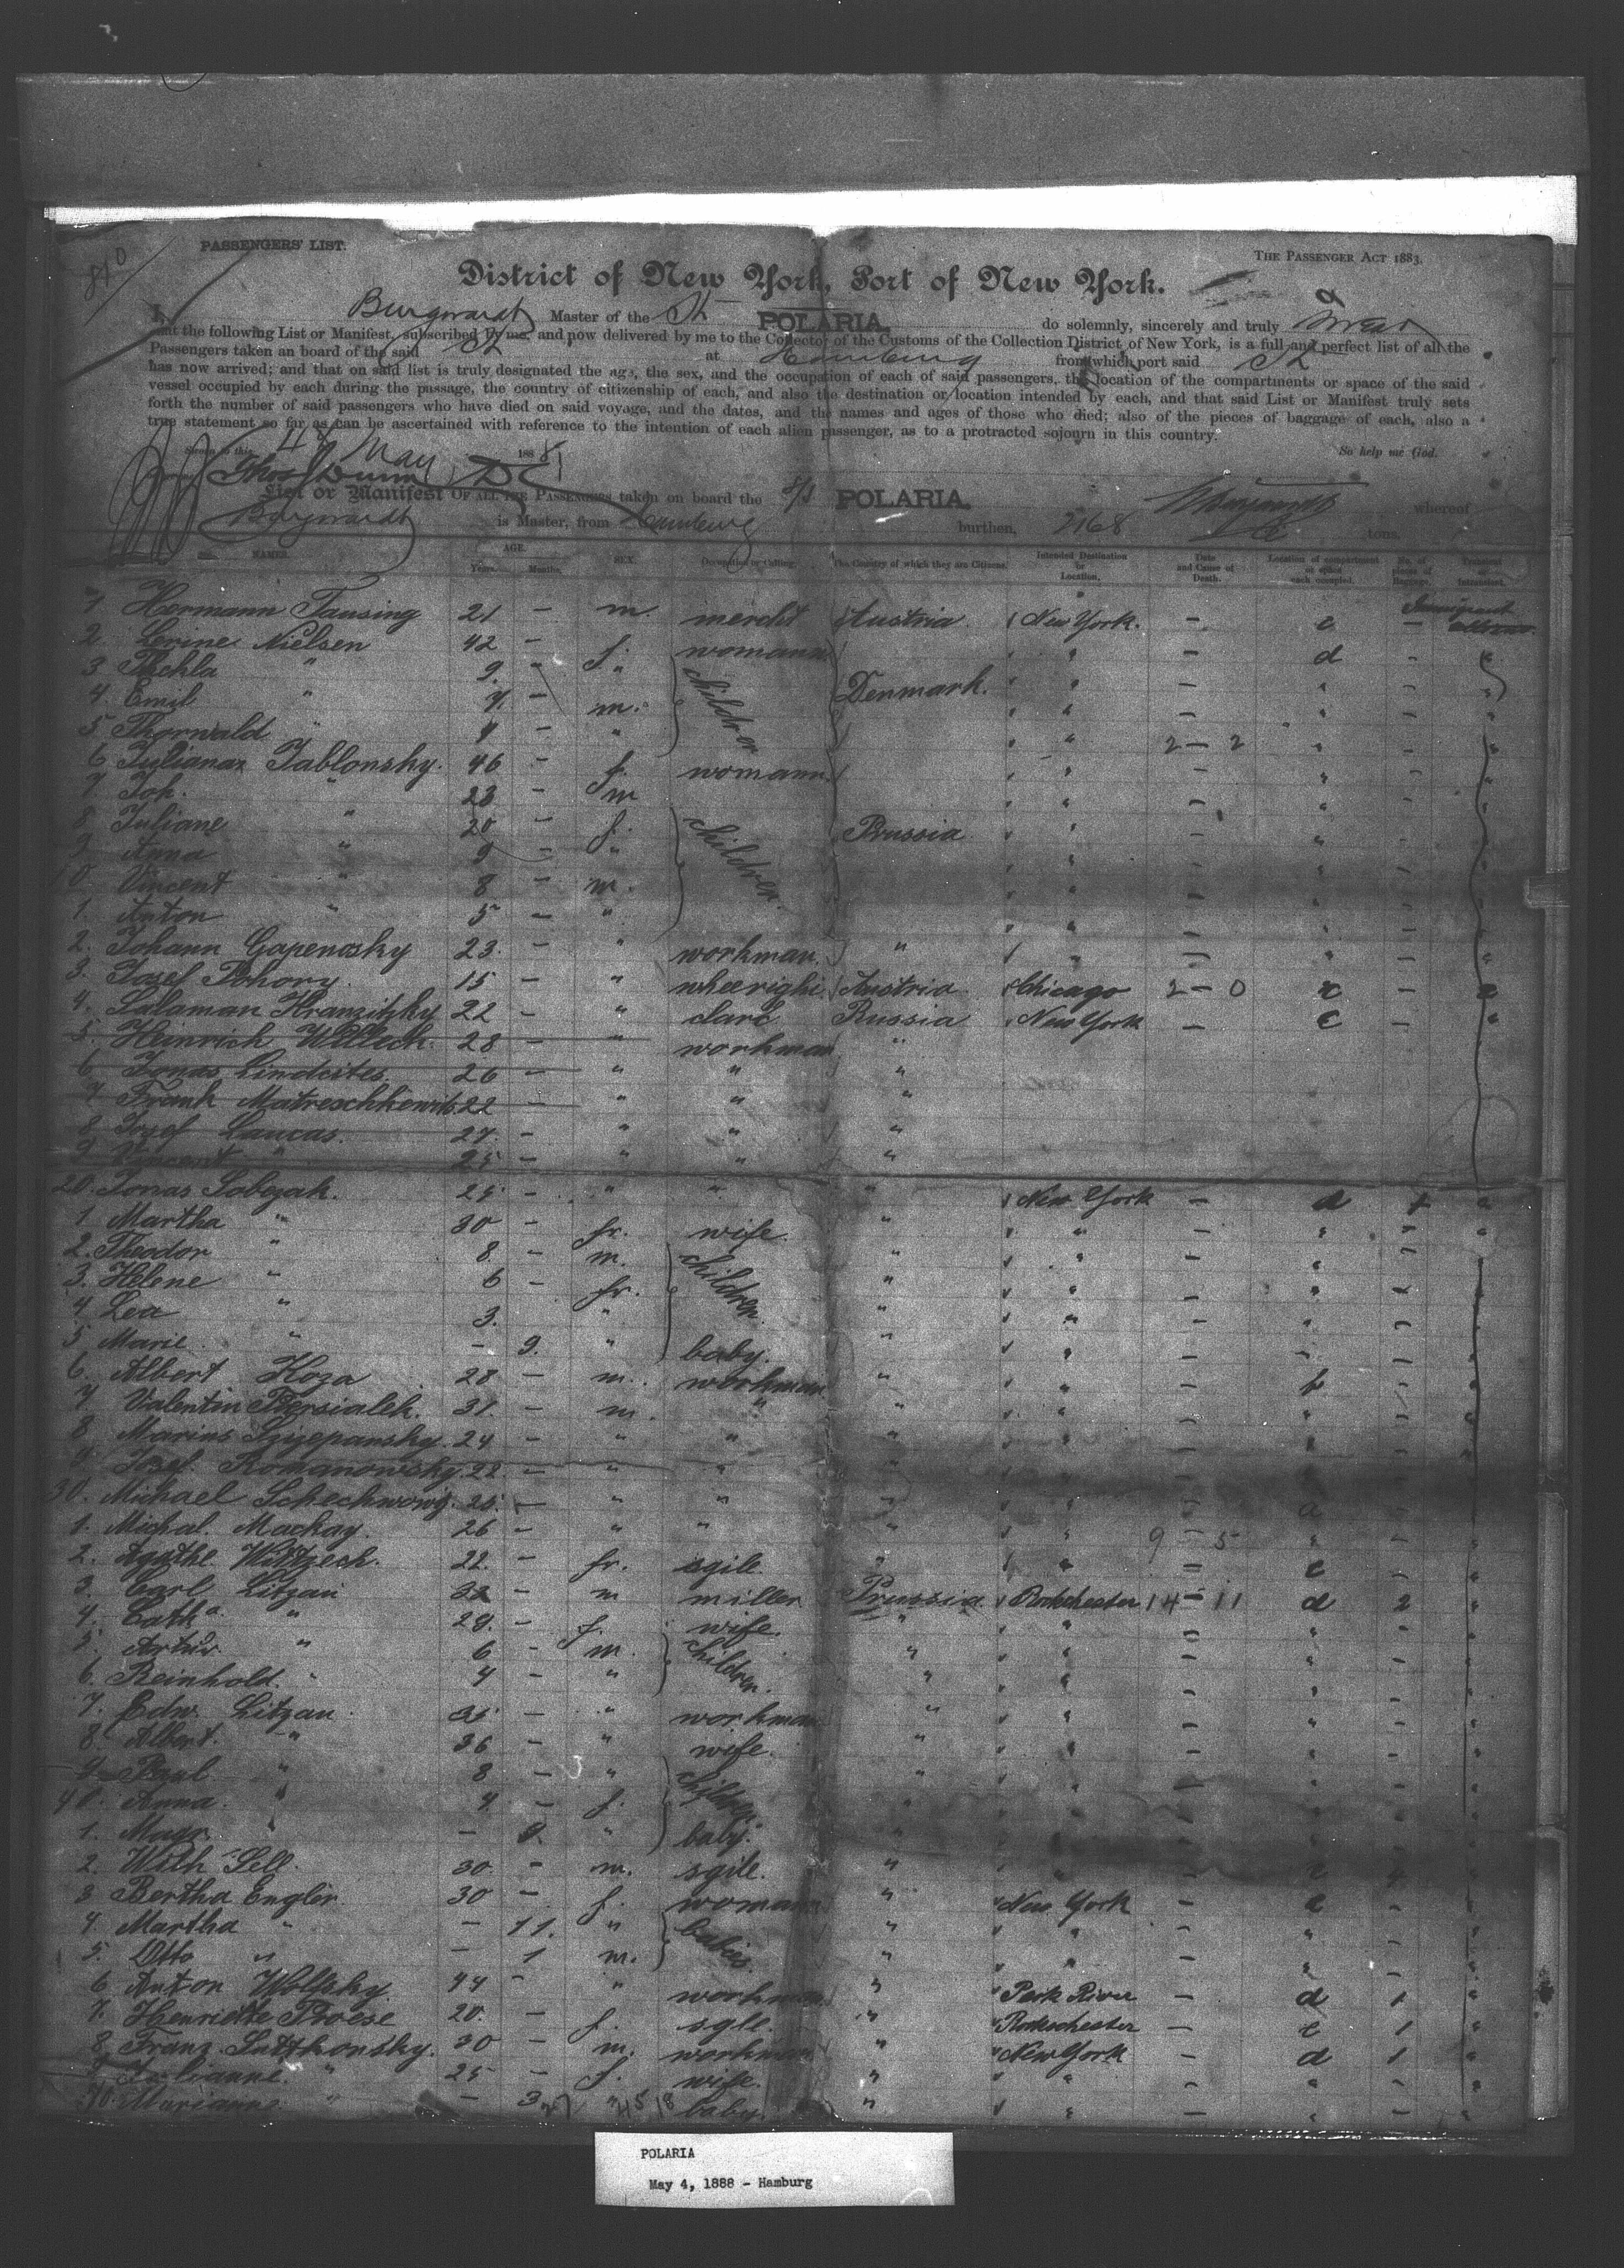 810
PASSENGERS' LIST.
THE PASSENGER ACT 1883.
District of New York, Port of New York.
I, Burgwardt Master of the St POLARIA, do solemnly, sincerely and truly swear
that the following List or Manifest, subscribed by me, and now delivered by me to the Collector of the Customs of the Collection District of New York, is a full and perfect list of all the
Passengers taken on board of the said St at Hamburg from which port said St
has now arrived; and that on said list is truly designated the age, the sex, and the occupation of each of said passengers, the location of the compartments or space of the said
vessel occupied by each during the passage, the country of citizenship of each, and also the destination or location intended by each, and that said List or Manifest truly sets
forth the number of said passengers who have died on said voyage, and the dates, and the names and ages of those who died; also of the pieces of baggage of each, also a
true statement so far as can be ascertained with reference to the intention of each alien passenger, as to a protracted sojourn in this country.
Sworn to this 4th May 1888 So help me God.
Thos Dunn DC
List or Manifest OF ALL THE PASSENGERS taken on board the S/S POLARIA whereof
Burgwardt is Master, from Hamburg burthen, 2168 tons.
NAMES. AGE. Years. Months. SEX. Occupation or Calling. The Country of which they are Citizens. Intended Destination or Location. Date and Cause of Death. Location of compartment or space each occupied. No. of pieces of Baggage. Transient or Intransient.
1 Hermann Tausing 21 - m. mercht Austria New York. - c - Immigrant
2. Lerine Nielsen 42 - f. womann " - d - "
3 Thekla " 9. - " children Denmark. " - " - "
4. Emil " 7. - m. " - " -
5 Thorwald " 9 - " " 2 - 2 " - "
6 Julianna Jablonsky. 46 - f. womann " - " - "
7. Joh. " 23 - m " - " - "
8 Juliane " 20 - f. children. Prussia " - " - "
9 Anna " 9 - " " - " - "
10 Vincent " 8 - m. " - " - "
1. Anton " 5 - " " - " - "
2. Johann Gapenosky 23. - " workman. " " - " - "
3. Josef Pohory. 15 - " wheerighi Austria Chicago 2 - 0 c - "
4. Salaman Kranzitzky 22 - " clarc Russia New York - c - "
5. Heinrich Willech. 28 - " workman "
6 Jonas Lindcites 26 - " " "
7 Frank Matreschkewitz 22 - " " "
8 Josef Laucas. 27. - " " "
9 Vincent " 25 - " " "
20. Jonas Sobezak. 25 - " " " New York - d 1 "
1 Martha " 30 - fr. wife. " " - " - "
2. Theodor " 8. - m. children. " " - " - "
3. Helene " 6 - fr. " " - " - "
4 Lea " 3. " " " - " - "
5 Marie " - 9. " baby. " " - " - "
6. Albert Koza 28 - m. workman " " - " - "
7. Valentin Bersialek. 31. - m. " " " - " - "
8 Marius Szyepansky. 24 - " " " " - " - "
9. Josef. Romanowsky. 22. - " " " " - " - "
30. Michael Schechwowiz. 25. - " " " " - " - "
1. Michal. Mackay. 26 - " " " " 9 - 5 " - "
2. Agathe Wittzech. 22. - fr. sgile. " " - c - "
3. Carl Litzau 32 - m miller Prussia Rochester 14 - 11 d 2 "
4. Catha " 29. - f. wife. " " - " - "
5. Artur " 6 - m. children. " " - " - "
6. Reinhold. " 4 - " " " - " - "
7. Edw. Litzau. 35 - " workman " " - " - "
8. Albert. " 36 - " wife. " " - " - "
9 Paul " 8 - " children " " - " - "
40. Anna. " 4. - f. " " - " - "
1. Magr. " - 9. " baby. " " - " - "
2. Wilh Sell. 30. - m. sgile. " " - c 4 "
3 Bertha Engler. 30 - f. womann " New York - c - "
4. Martha " - 11. " babies. " " - " - "
5. Otto " - 1 m. " " - " - "
6 Anton Wolfsky. 44 - " workman " Park River - d 1 "
7. Henriette Proese 20. - f. sgle. " Rochester - c 1 "
8. Franz Sutkonsky. 30 - m. workman " New York - d 1 "
9 Julianne. " 25 - f. wife. " " - " - "
50. Marianne. " - 3 " baby. " " - " - "
POLARIA
May 4, 1888 - Hamburg